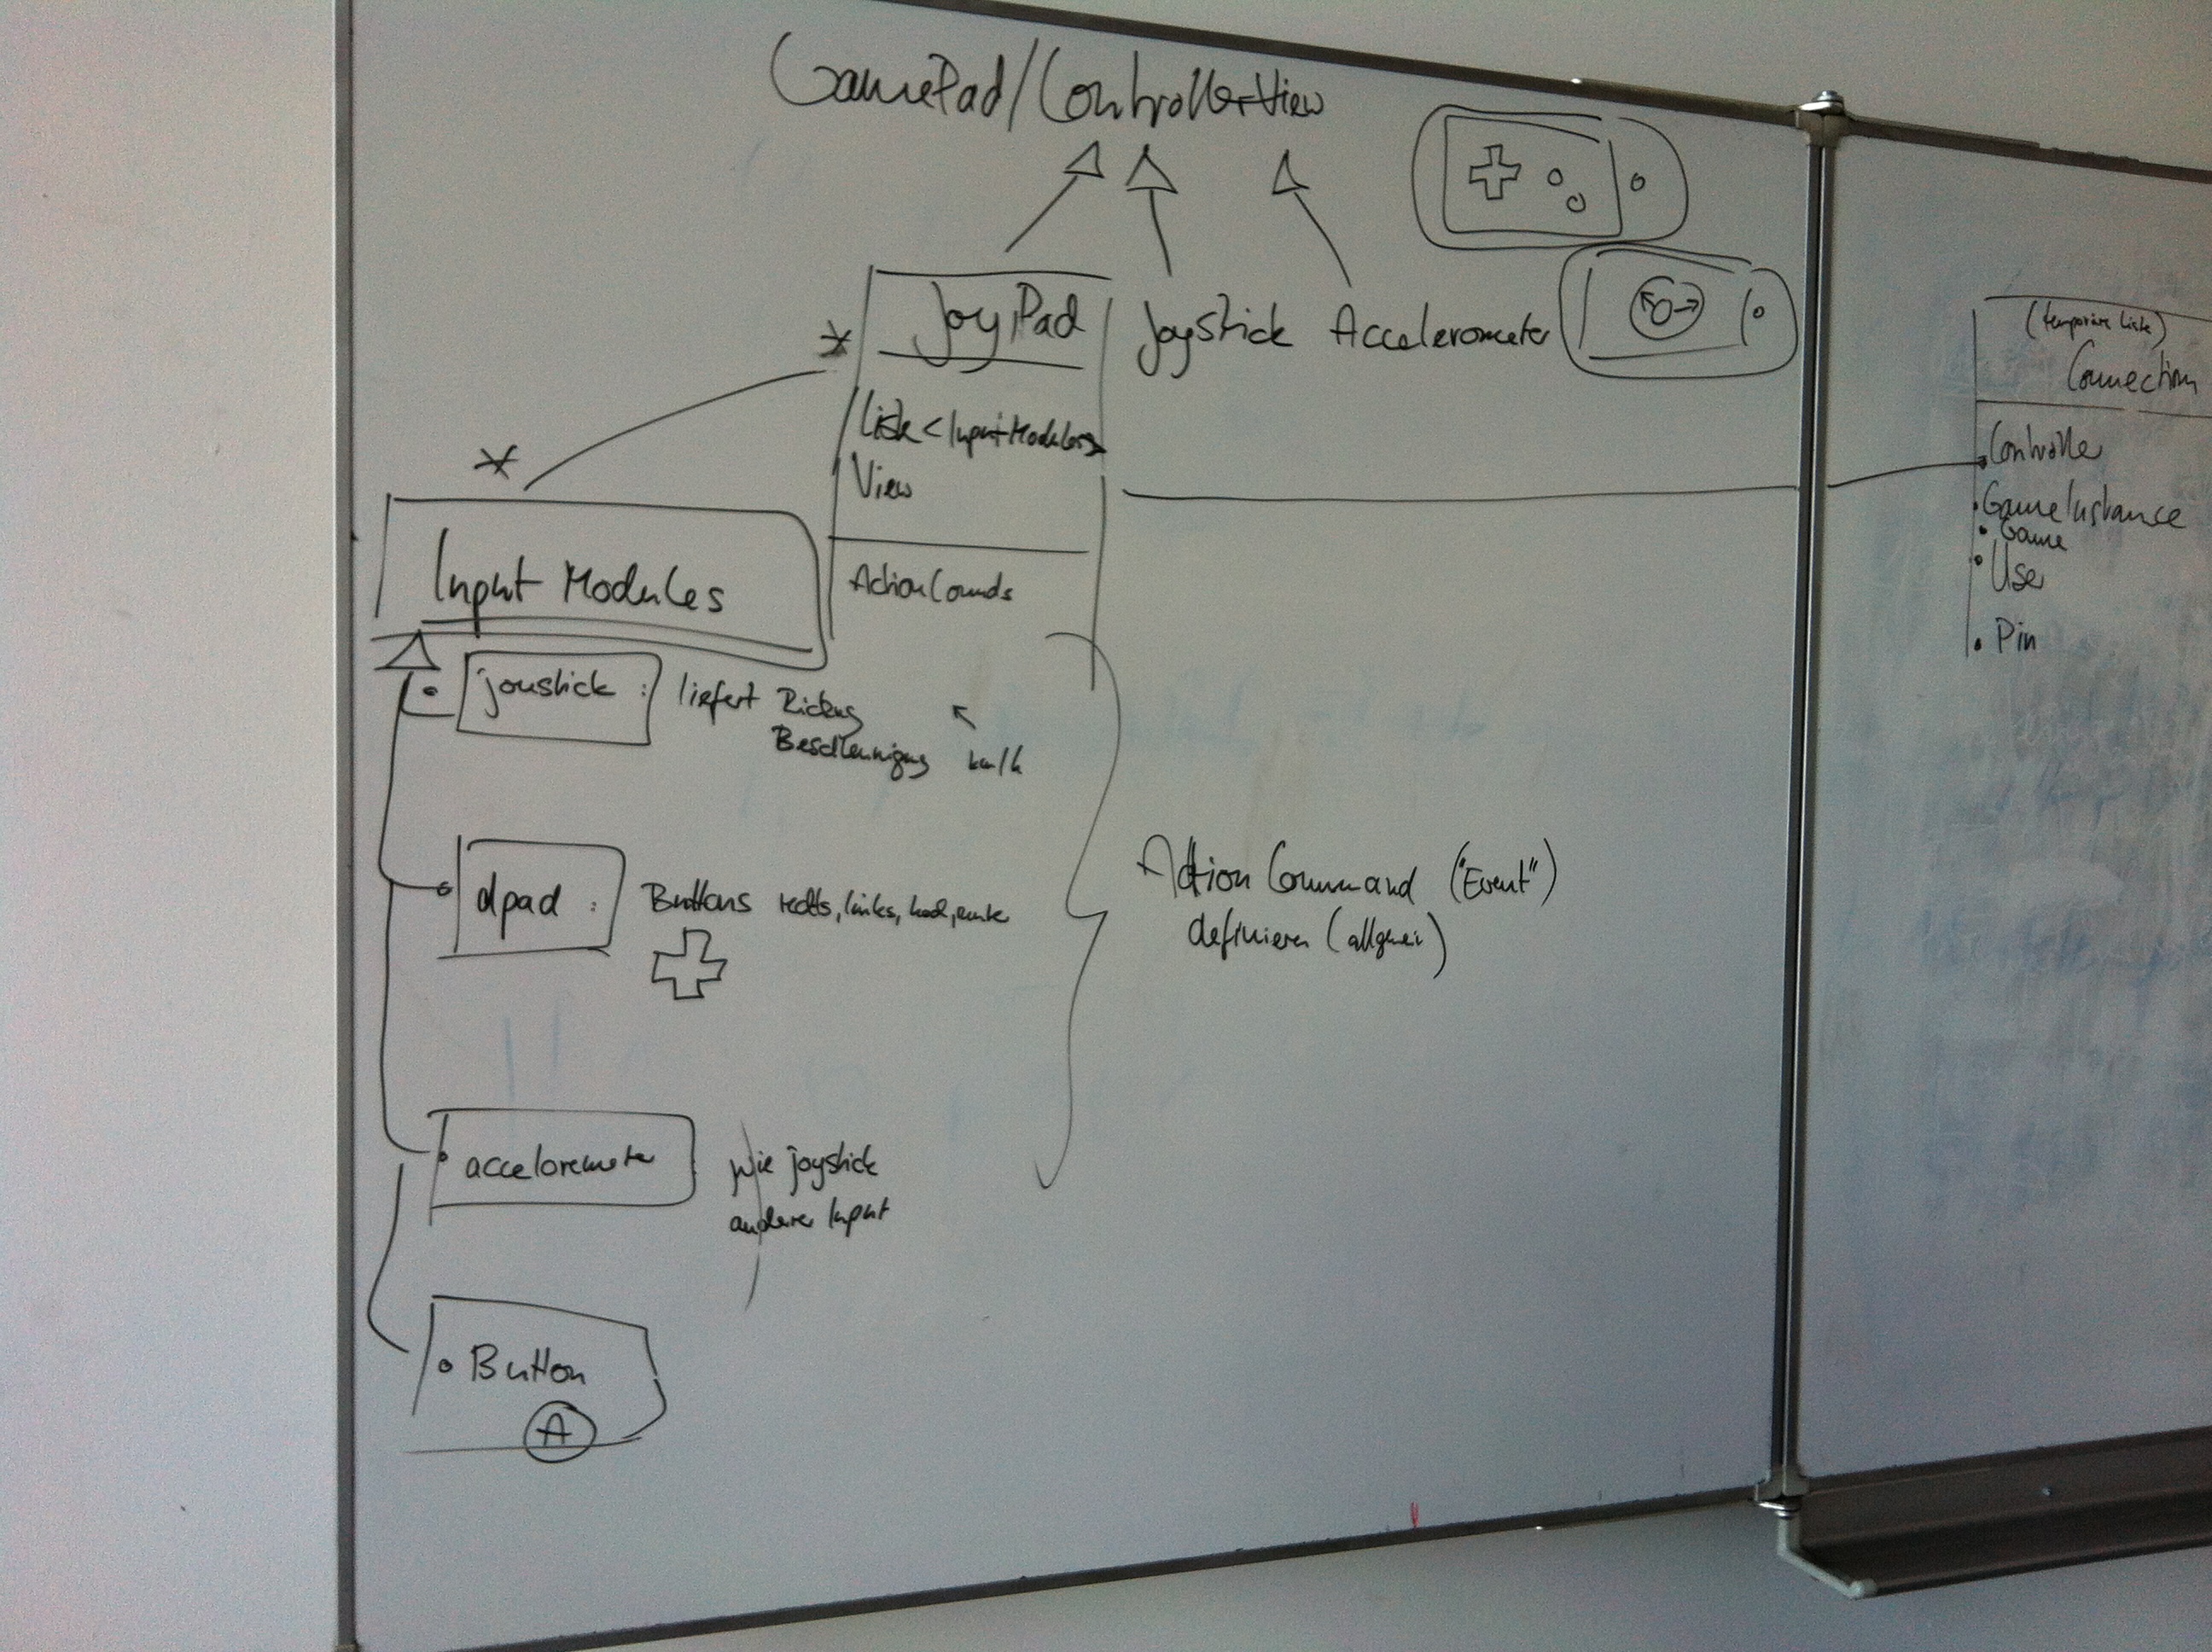 GamePad/ControllerView
JoyPad
Joystick
Accelerometer
Liste<InputModules>
View
ActionComds
*
*
Input Modules
joystick :
liefert Richtung
Beschleunigung
km/h
dpad :
Buttons rechts, links, hoch, runter
acceloremeter
wie joystick
anderer Input
Button
A
Action Command ("Event")
definieren (allgemein)
(temporäre Liste)
Connection
Controller
GameInstance
Game
User
Pin